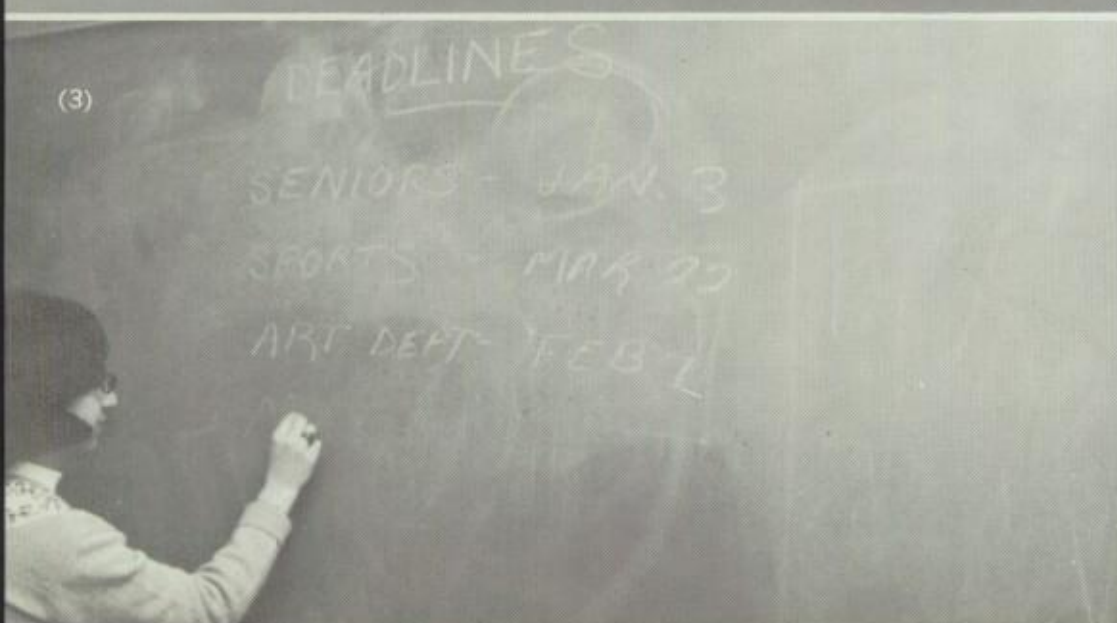 (3)
DEADLINES
SENIORS - JAN. 3
SPORTS - MAR 22
ART DEPT - FEB